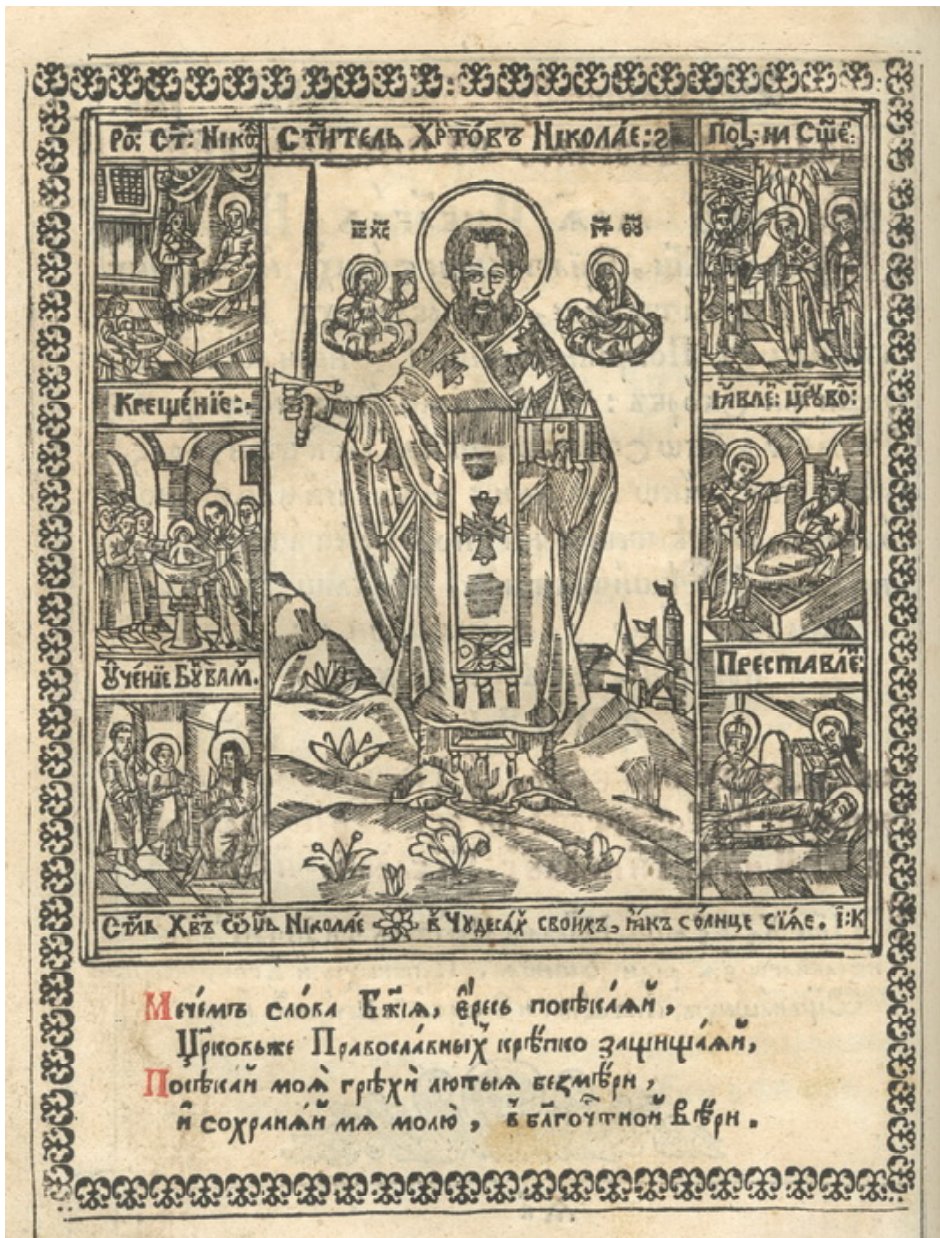 РО: СТ: НІКО:
СТ҃ИТЕЛЬ ХРТ҇ОВЪ НІКОЛАЕ:
ПО: НА СЩЕ:
І҃С Х҃С
М҃Р Ѳ҃У
КРЕЩЕ́НІЕ:
ІАВЛЕ: ЦРУ ВО:
ѸЧЕ́НІЕ БУКВАМ.
ПРЕСТАВЛЕ:
СТ҃ЛЬ ХВ҃Ъ ѾЦЬ НІКОЛАЕ В ЧУДЕСА́Х СВОИ́ХЪ, ꙖКЪ СО́ЛНЦЕ СІѦ́Е. І: К
Мече́мъ сло́ва Бж҃їѧ, є҆ресь посѣка́ѧй,
Цр҃ковьже Правосла́вныѧ крѣ́пко защища́ѧй,
Посѣка́й моѧ̀ грѣхѝ лютыѧ безмѣ́рн,
и҆ сохранѧ́й мѧ молю̀, в бл҃гоч҇тной вѣ́рн.